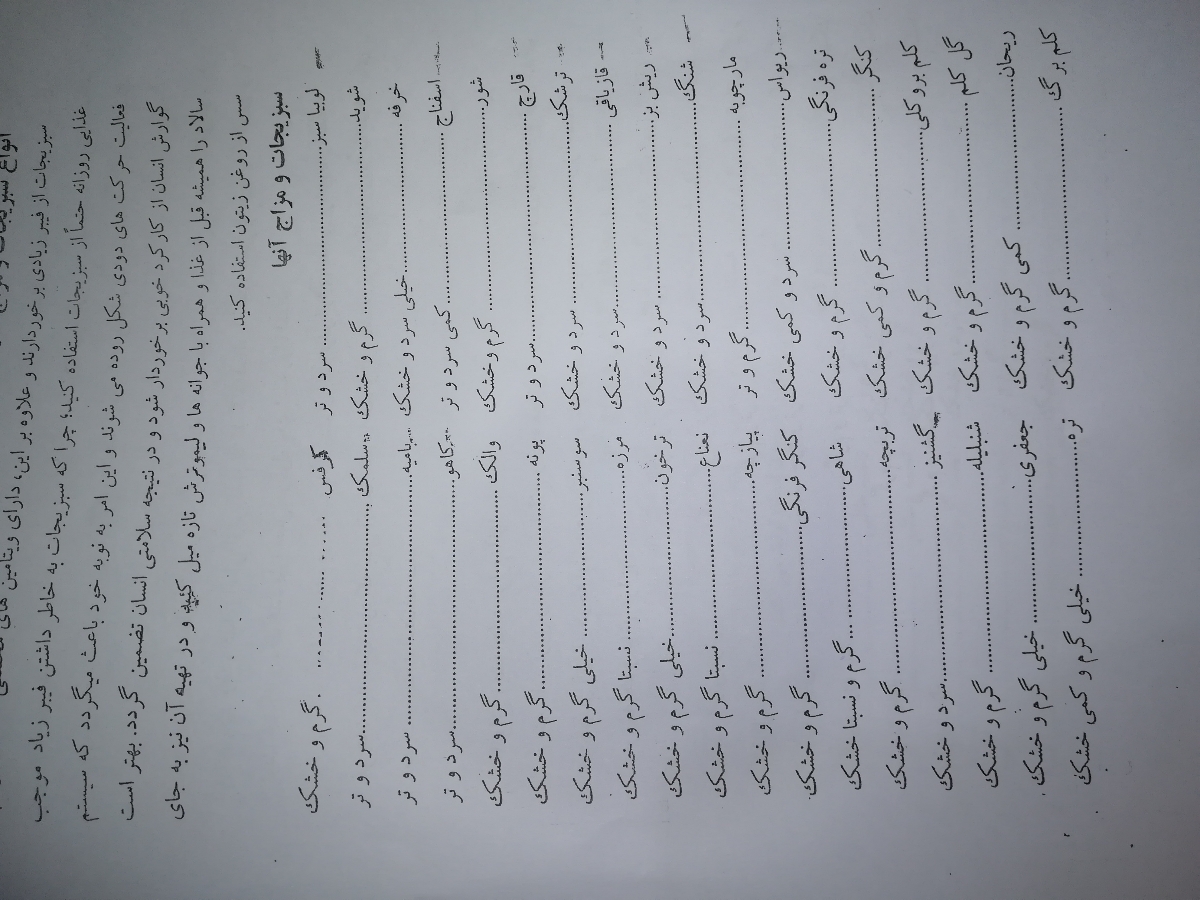 انواع سبزیجات و
سبزیجات از فیبر زیادی برخوردارند و علاوه بر این، دارای ویتامین های
غذایی روزانه حتماً از سبزیجات استفاده کنید؛ چرا که سبزیجات به خاطر داشتن فیبر زیاد موجب
فعالیت حرکت های دودی شکل روده می شوند و این امر به نوبه خود باعث میگردد که سیستم
گوارش انسان از کارکرد خوبی برخوردار شود و در نتیجه سلامتی انسان تضمین گردد. بهتر است
سالاد را همیشه قبل از غذا و همراه با جوانه ها و لیموترش تازه میل کنید و در تهیه آن نیز به جای
سس از روغن زیتون استفاده کنید.
سبزیجات و مزاج آنها
لوبیا سبز ........ سرد و تر کرفس ........ گرم و خشک
شوید ........ گرم و خشک سلمک ........ سرد و تر
خرفه ........ خیلی سرد و خشک بامیه ........ سرد و تر
اسفناج ........ کمی سرد و تر کاهو ........ سرد و تر
شور ........ گرم و خشک والک ........ گرم و خشک
قارچ ........ سرد و تر پونه ........ گرم و خشک
ترشک ........ سرد و خشک سوسنبر ........ خیلی گرم و خشک
قازیاقی ........ سرد و خشک مرزه ........ نسبتا گرم و خشک
ریش بز ........ سرد و خشک ترخون ........ خیلی گرم و خشک
شنگ ........ سرد و خشک نعناع ........ نسبتا گرم و خشک
مارچوبه ........ گرم و تر پیازچه ........ گرم و خشک
ریواس ........ سرد و کمی خشک کنگر فرنگی ........ گرم و خشک
تره فرنگی ........ گرم و خشک شاهی ........ گرم و نسبتا خشک
کنگر ........ گرم و کمی خشک تربچه ........ گرم و خشک
کلم بروکلی ........ گرم و خشک گشنیز ........ سرد و خشک
گل کلم ........ گرم و خشک شنبلیله ........ گرم و خشک
ریحان ........ کمی گرم و خشک جعفری ........ خیلی گرم و خشک
کلم برگ ........ گرم و خشک تره ........ خیلی گرم و کمی خشک